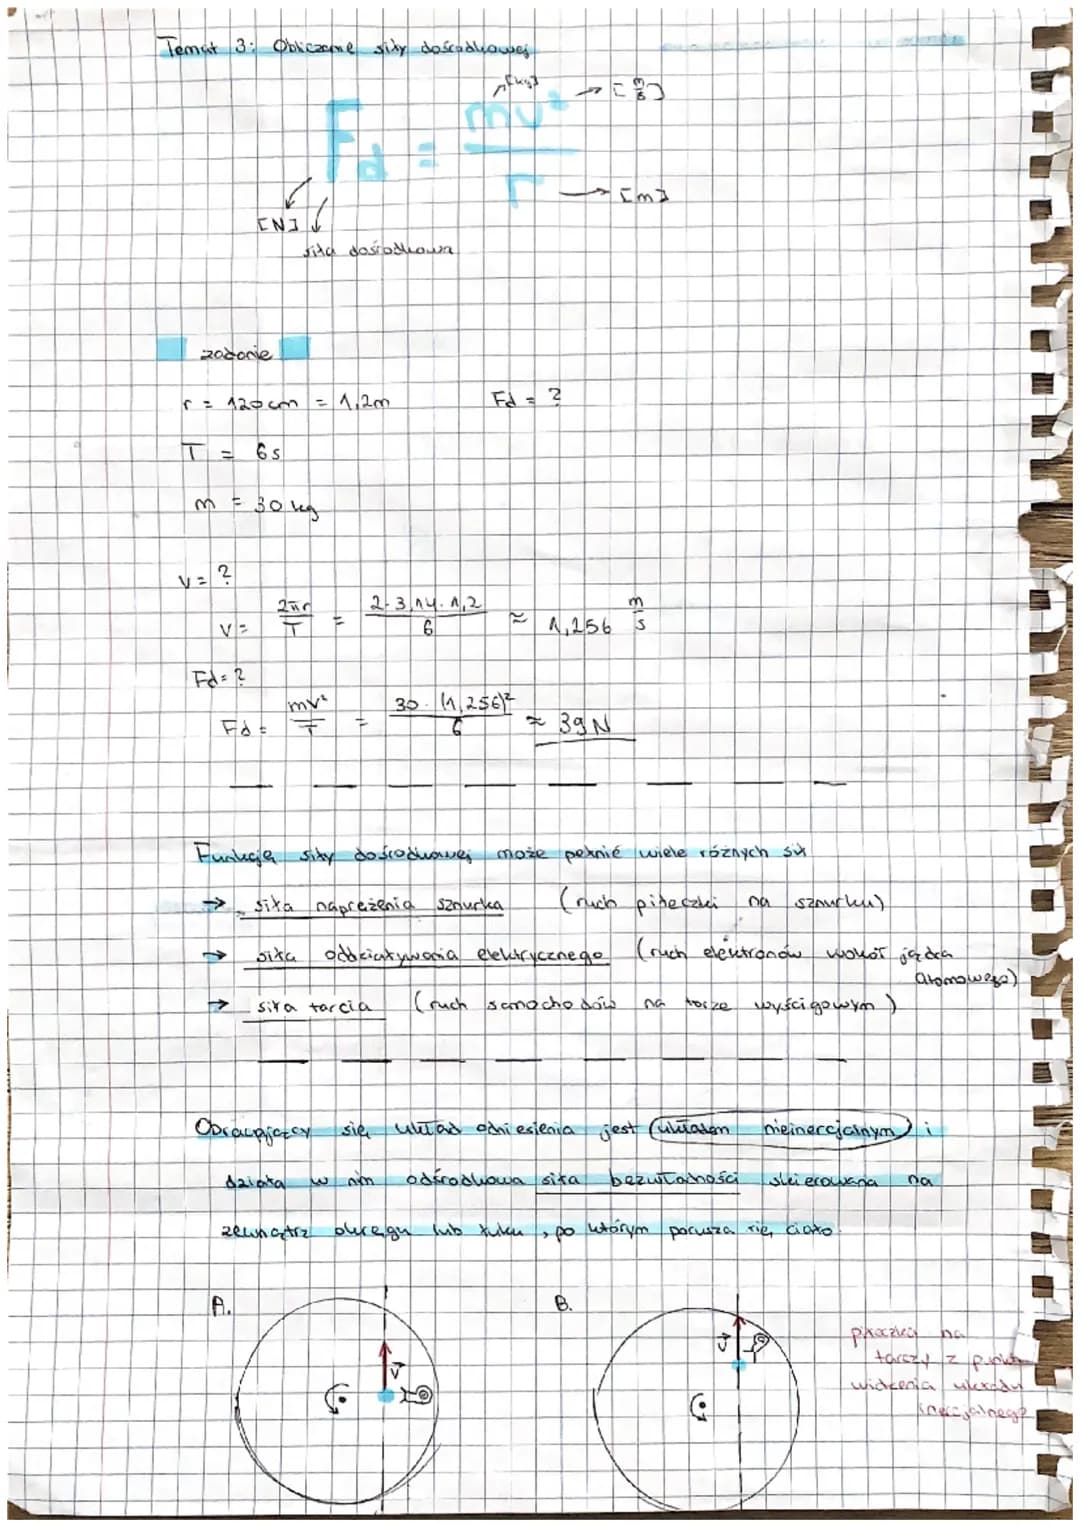 Temat 3: Obliczanie siły dośrodkowej
[kg]
→ [m/s]
Fd = mv²/r
→ [m]
[N]
siła dośrodkowa
zadanie
r = 120cm = 1,2m Fd = ?
T = 6s
m = 30 kg
v = ?
v = 2πr/T = 2·3,14·1,2/6 ≈ 1,256 m/s
Fd = ?
Fd = mv²/T = 30·(1,256)²/6 ≈ 39N
Funkcję siły dośrodkowej może pełnić wiele różnych sił
→ siła naprężenia sznurka (ruch piłeczki na sznurku)
→ siła oddziaływania elektrycznego (ruch elektronów wokół jądra
atomowego)
→ siła tarcia (ruch samochodów na torze wyścigowym)
Obracający się układ odniesienia jest układem nieinercjalnym i
działa w nim odśrodkowa siła bezwładności skierowana na
zewnątrz okręgu lub łuku, po którym porusza się ciało.
A.
B.
v
v
piłeczka na
tarczy z punktu
widzenia układu
inercjalnego